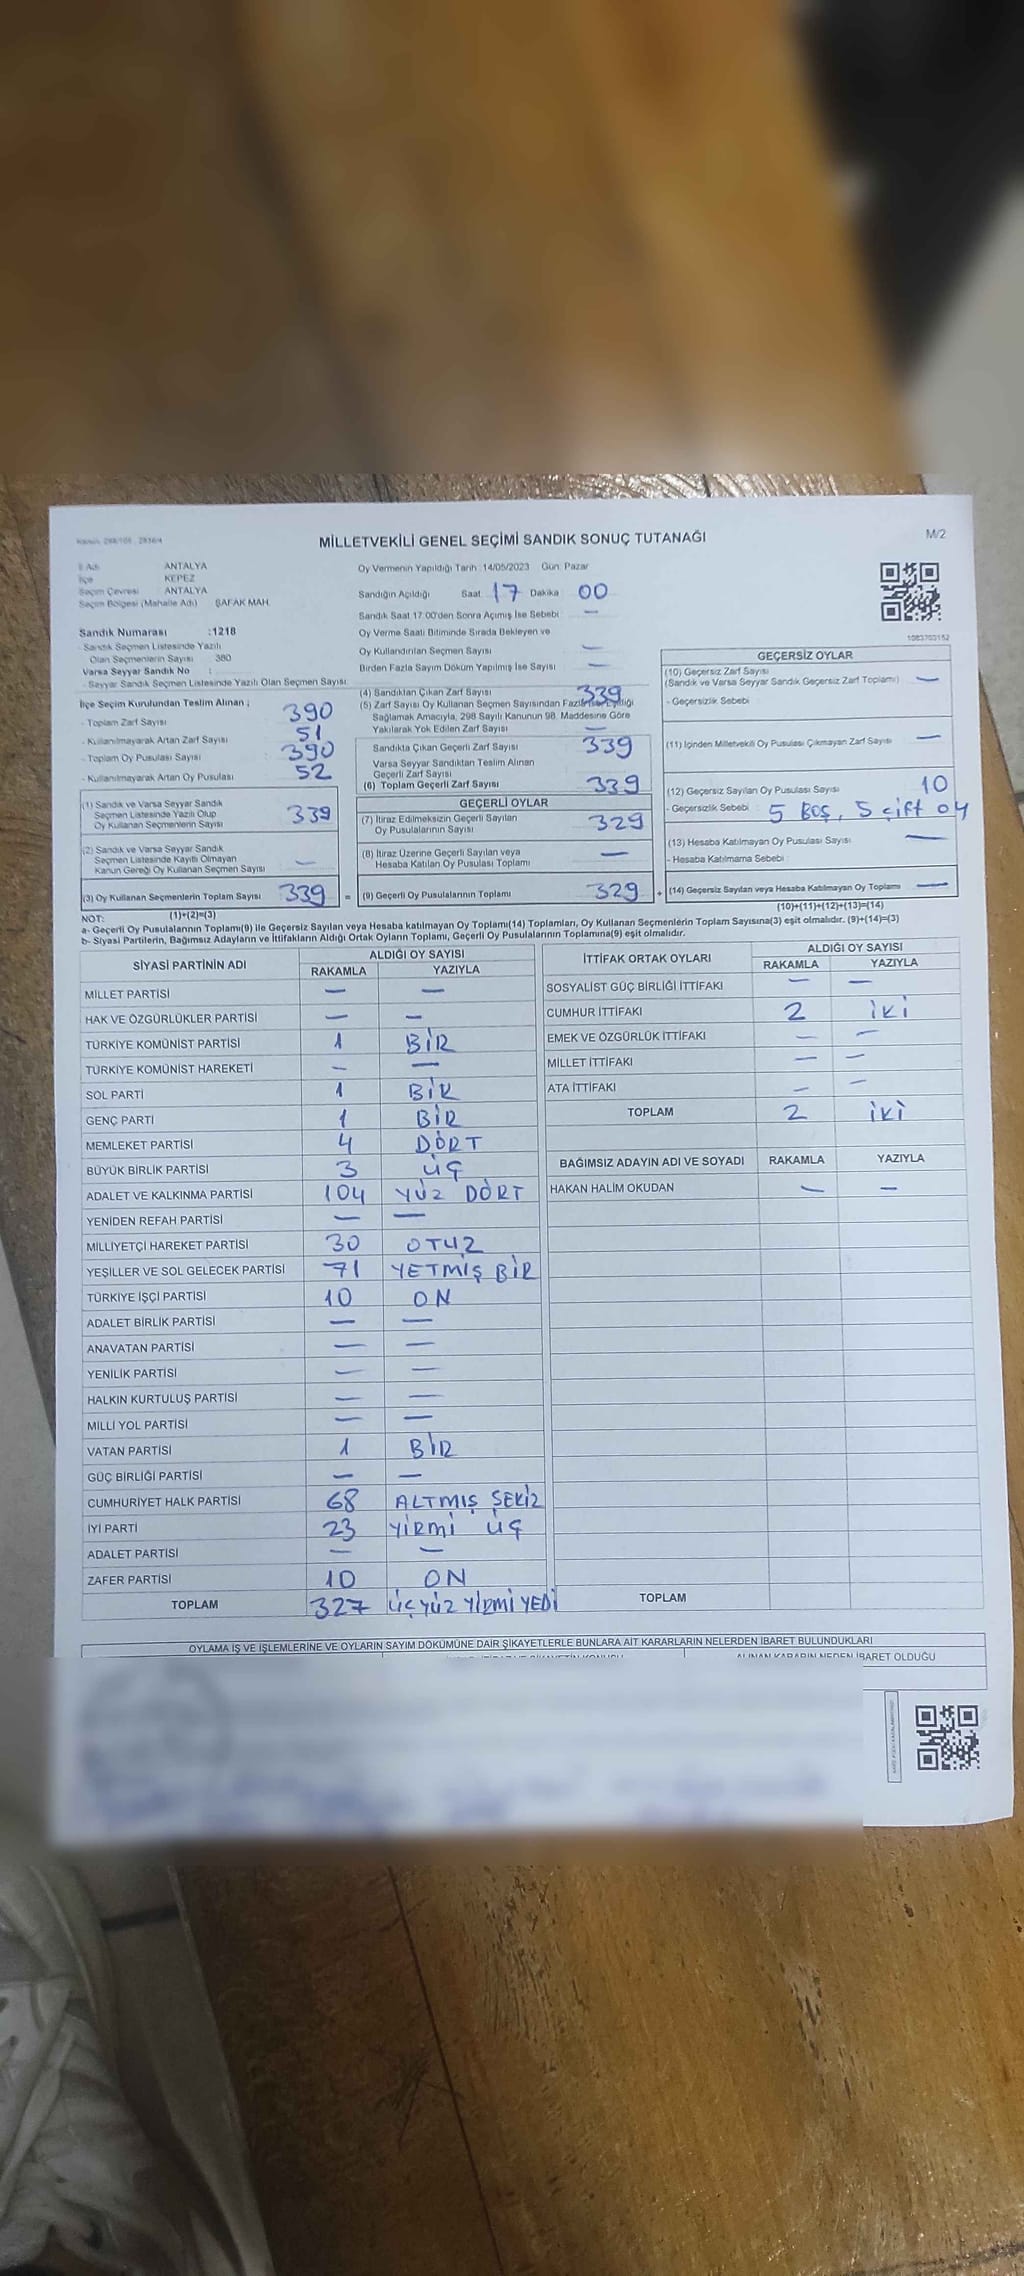 Kanun: 298/105 , 2839/4
MİLLETVEKİLİ GENEL SEÇİMİ SANDIK SONUÇ TUTANAĞI
M/2
İl Adı ANTALYA
İlçe KEPEZ
Seçim Çevresi ANTALYA
Seçim Bölgesi (Mahalle Adı) ŞAFAK MAH.
Sandık Numarası :1218
- Sandık Seçmen Listesinde Yazılı
Olan Seçmenlerin Sayısı 380
Varsa Seyyar Sandık No :
- Seyyar Sandık Seçmen Listesinde Yazılı Olan Seçmen Sayısı
Oy Vermenin Yapıldığı Tarih :14/05/2023 Gün: Pazar
Sandığın Açıldığı Saat 17 Dakika 00
Sandık Saat 17:00'den Sonra Açımış İse Sebebi : —
Oy Verme Saati Bitiminde Sırada Bekleyen ve
Oy Kullandırılan Seçmen Sayısı —
Birden Fazla Sayım Döküm Yapılmış İse Sayısı —
1083703152
İlçe Seçim Kurulundan Teslim Alınan ;
- Toplam Zarf Sayısı 390
- Kullanılmayarak Artan Zarf Sayısı 51
- Toplam Oy Pusulası Sayısı 390
- Kullanılmayarak Artan Oy Pusulası 52
(1) Sandık ve Varsa Seyyar Sandık
Seçmen Listesinde Yazılı Olup
Oy Kullanan Seçmenlerin Sayısı 339
(2) Sandık ve Varsa Seyyar Sandık
Seçmen Listesinde Kayıtlı Olmayan
Kanun Gereği Oy Kullanan Seçmen Sayısı —
(3) Oy Kullanan Seçmenlerin Toplam Sayısı 339 =
(1)+(2)=(3)
(4) Sandıktan Çıkan Zarf Sayısı 339
(5) Zarf Sayısı Oy Kullanan Seçmen Sayısından Fazla İse Eşitliği
Sağlamak Amacıyla, 298 Sayılı Kanunun 98. Maddesine Göre
Yakılarak Yok Edilen Zarf Sayısı —
Sandıkta Çıkan Geçerli Zarf Sayısı 339
Varsa Seyyar Sandıktan Teslim Alınan
Geçerli Zarf Sayısı
(6) Toplam Geçerli Zarf Sayısı 339
GEÇERLİ OYLAR
(7) İtiraz Edilmeksizin Geçerli Sayılan
Oy Pusulalarının Sayısı 329
(8) İtiraz Üzerine Geçerli Sayılan veya
Hesaba Katılan Oy Pusulası Toplamı —
(9) Geçerli Oy Pusulalarının Toplamı 329 +
GEÇERSİZ OYLAR
(10) Geçersiz Zarf Sayısı
(Sandık ve Varsa Seyyar Sandık Geçersiz Zarf Toplamı) —
- Geçersizlik Sebebi
(11) İçinden Milletvekili Oy Pusulası Çıkmayan Zarf Sayısı —
(12) Geçersiz Sayılan Oy Pusulası Sayısı 10
- Geçersizlik Sebebi : 5 BOŞ, 5 çift oy
(13) Hesaba Katılmayan Oy Pusulası Sayısı —
- Hesaba Katılmama Sebebi :
(14) Geçersiz Sayılan veya Hesaba Katılmayan Oy Toplamı —
(10)+(11)+(12)+(13)=(14)
NOT:
a- Geçerli Oy Pusulalarının Toplamı(9) ile Geçersiz Sayılan veya Hesaba katılmayan Oy Toplamı(14) Toplamları, Oy Kullanan Seçmenlerin Toplam Sayısına(3) eşit olmalıdır. (9)+(14)=(3)
b- Siyasi Partilerin, Bağımsız Adayların ve İttifakların Aldığı Ortak Oyların Toplamı, Geçerli Oy Pusulalarının Toplamına(9) eşit olmalıdır.
SİYASİ PARTİNİN ADI ALDIĞI OY SAYISI
RAKAMLA YAZIYLA
MİLLET PARTİSİ — —
HAK VE ÖZGÜRLÜKLER PARTİSİ — —
TÜRKİYE KOMÜNİST PARTİSİ 1 BİR
TÜRKİYE KOMÜNİST HAREKETİ — —
SOL PARTİ 1 BİR
GENÇ PARTİ 1 BİR
MEMLEKET PARTİSİ 4 DÖRT
BÜYÜK BİRLİK PARTİSİ 3 ÜÇ
ADALET VE KALKINMA PARTİSİ 104 YÜZ DÖRT
YENİDEN REFAH PARTİSİ — —
MİLLİYETÇİ HAREKET PARTİSİ 30 OTUZ
YEŞİLLER VE SOL GELECEK PARTİSİ 71 YETMİŞ BİR
TÜRKİYE İŞÇİ PARTİSİ 10 ON
ADALET BİRLİK PARTİSİ — —
ANAVATAN PARTİSİ — —
YENİLİK PARTİSİ — —
HALKIN KURTULUŞ PARTİSİ — —
MİLLİ YOL PARTİSİ — —
VATAN PARTİSİ 1 BİR
GÜÇ BİRLİĞİ PARTİSİ — —
CUMHURİYET HALK PARTİSİ 68 ALTMIŞ ŞEKİZ
İYİ PARTİ 23 YİRMİ ÜÇ
ADALET PARTİSİ — —
ZAFER PARTİSİ 10 ON
TOPLAM 327 ÜÇ YÜZ YİRMİ YEDİ
İTTİFAK ORTAK OYLARI ALDIĞI OY SAYISI
RAKAMLA YAZIYLA
SOSYALİST GÜÇ BİRLİĞİ İTTİFAKI — —
CUMHUR İTTİFAKI 2 İKİ
EMEK VE ÖZGÜRLÜK İTTİFAKI — —
MİLLET İTTİFAKI — —
ATA İTTİFAKI — —
TOPLAM 2 İKİ
BAĞIMSIZ ADAYIN ADI VE SOYADI RAKAMLA YAZIYLA
HAKAN HALİM OKUDAN — —
TOPLAM
OYLAMA İŞ VE İŞLEMLERİNE VE OYLARIN SAYIM DÖKÜMÜNE DAİR ŞİKAYETLERLE BUNLARA AİT KARARLARIN NELERDEN İBARET BULUNDUKLARI
ALINAN KARARIN NEDEN İBARET OLDUĞU